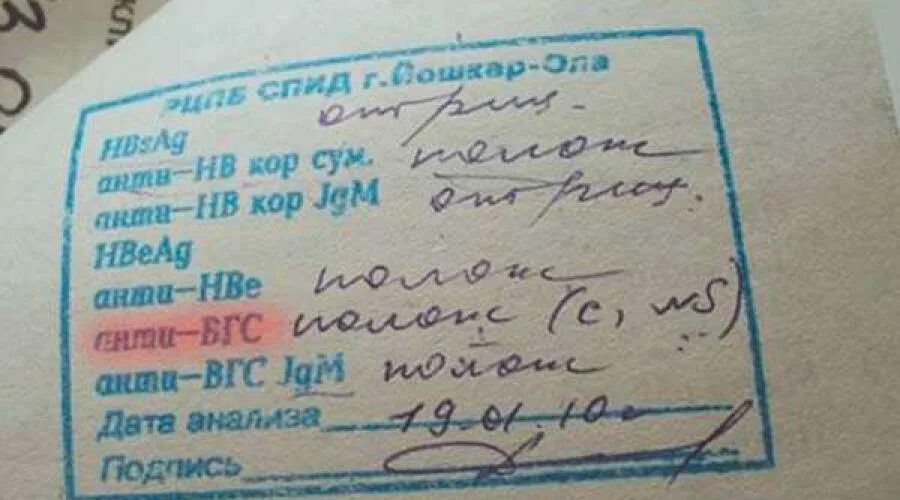 РЦПБ СПИД г.Йошкар-Ола
HBsAg отриц.
анти-НВ кор сум. полож
анти-НВ кор JgM отриц.
HBeAg
анти-НВе полож
анти-ВГС полож (с, NS)
анти-ВГС JgM полож
Дата анализа 19.01.10г
Подпись